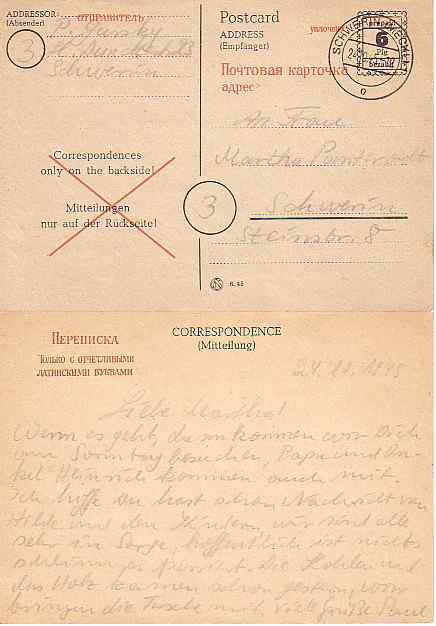 ADDRESSOR
(Absender)
ОТПРАВИТЕЛЬ
Schwerin
3
Correspondences
only on the backside!
Mitteilungen
nur auf der Rückseite!
Postcard
ADDRESS
(Empfänger)
уплочено
Почтовая карточка
адрес
prepaid
6
Pfg
bezahlt
SCHWERIN (MECKL)
An Frau
Martha
3
Schwerin
Steinstr. 8
6. 45
Переписка
Только с отчетливыми
латинскими буквами
CORRESPONDENCE
(Mitteilung)
24. 1945
Liebe Martha!
Wenn es geht, dann kommen wir Dich
am Sonntag besuchen, Papa und On-
kel Heinrich kommen auch mit.
Ich hoffe Du hast schon Nachricht von
Hilde und den Kindern, wir sind alle
sehr in Sorge, hoffentlich ist nichts
schlimmes passiert. die Kohlen und
das Holz kamen schon gestern, wir
bringen die Tasche mit. viele Grüße Paul